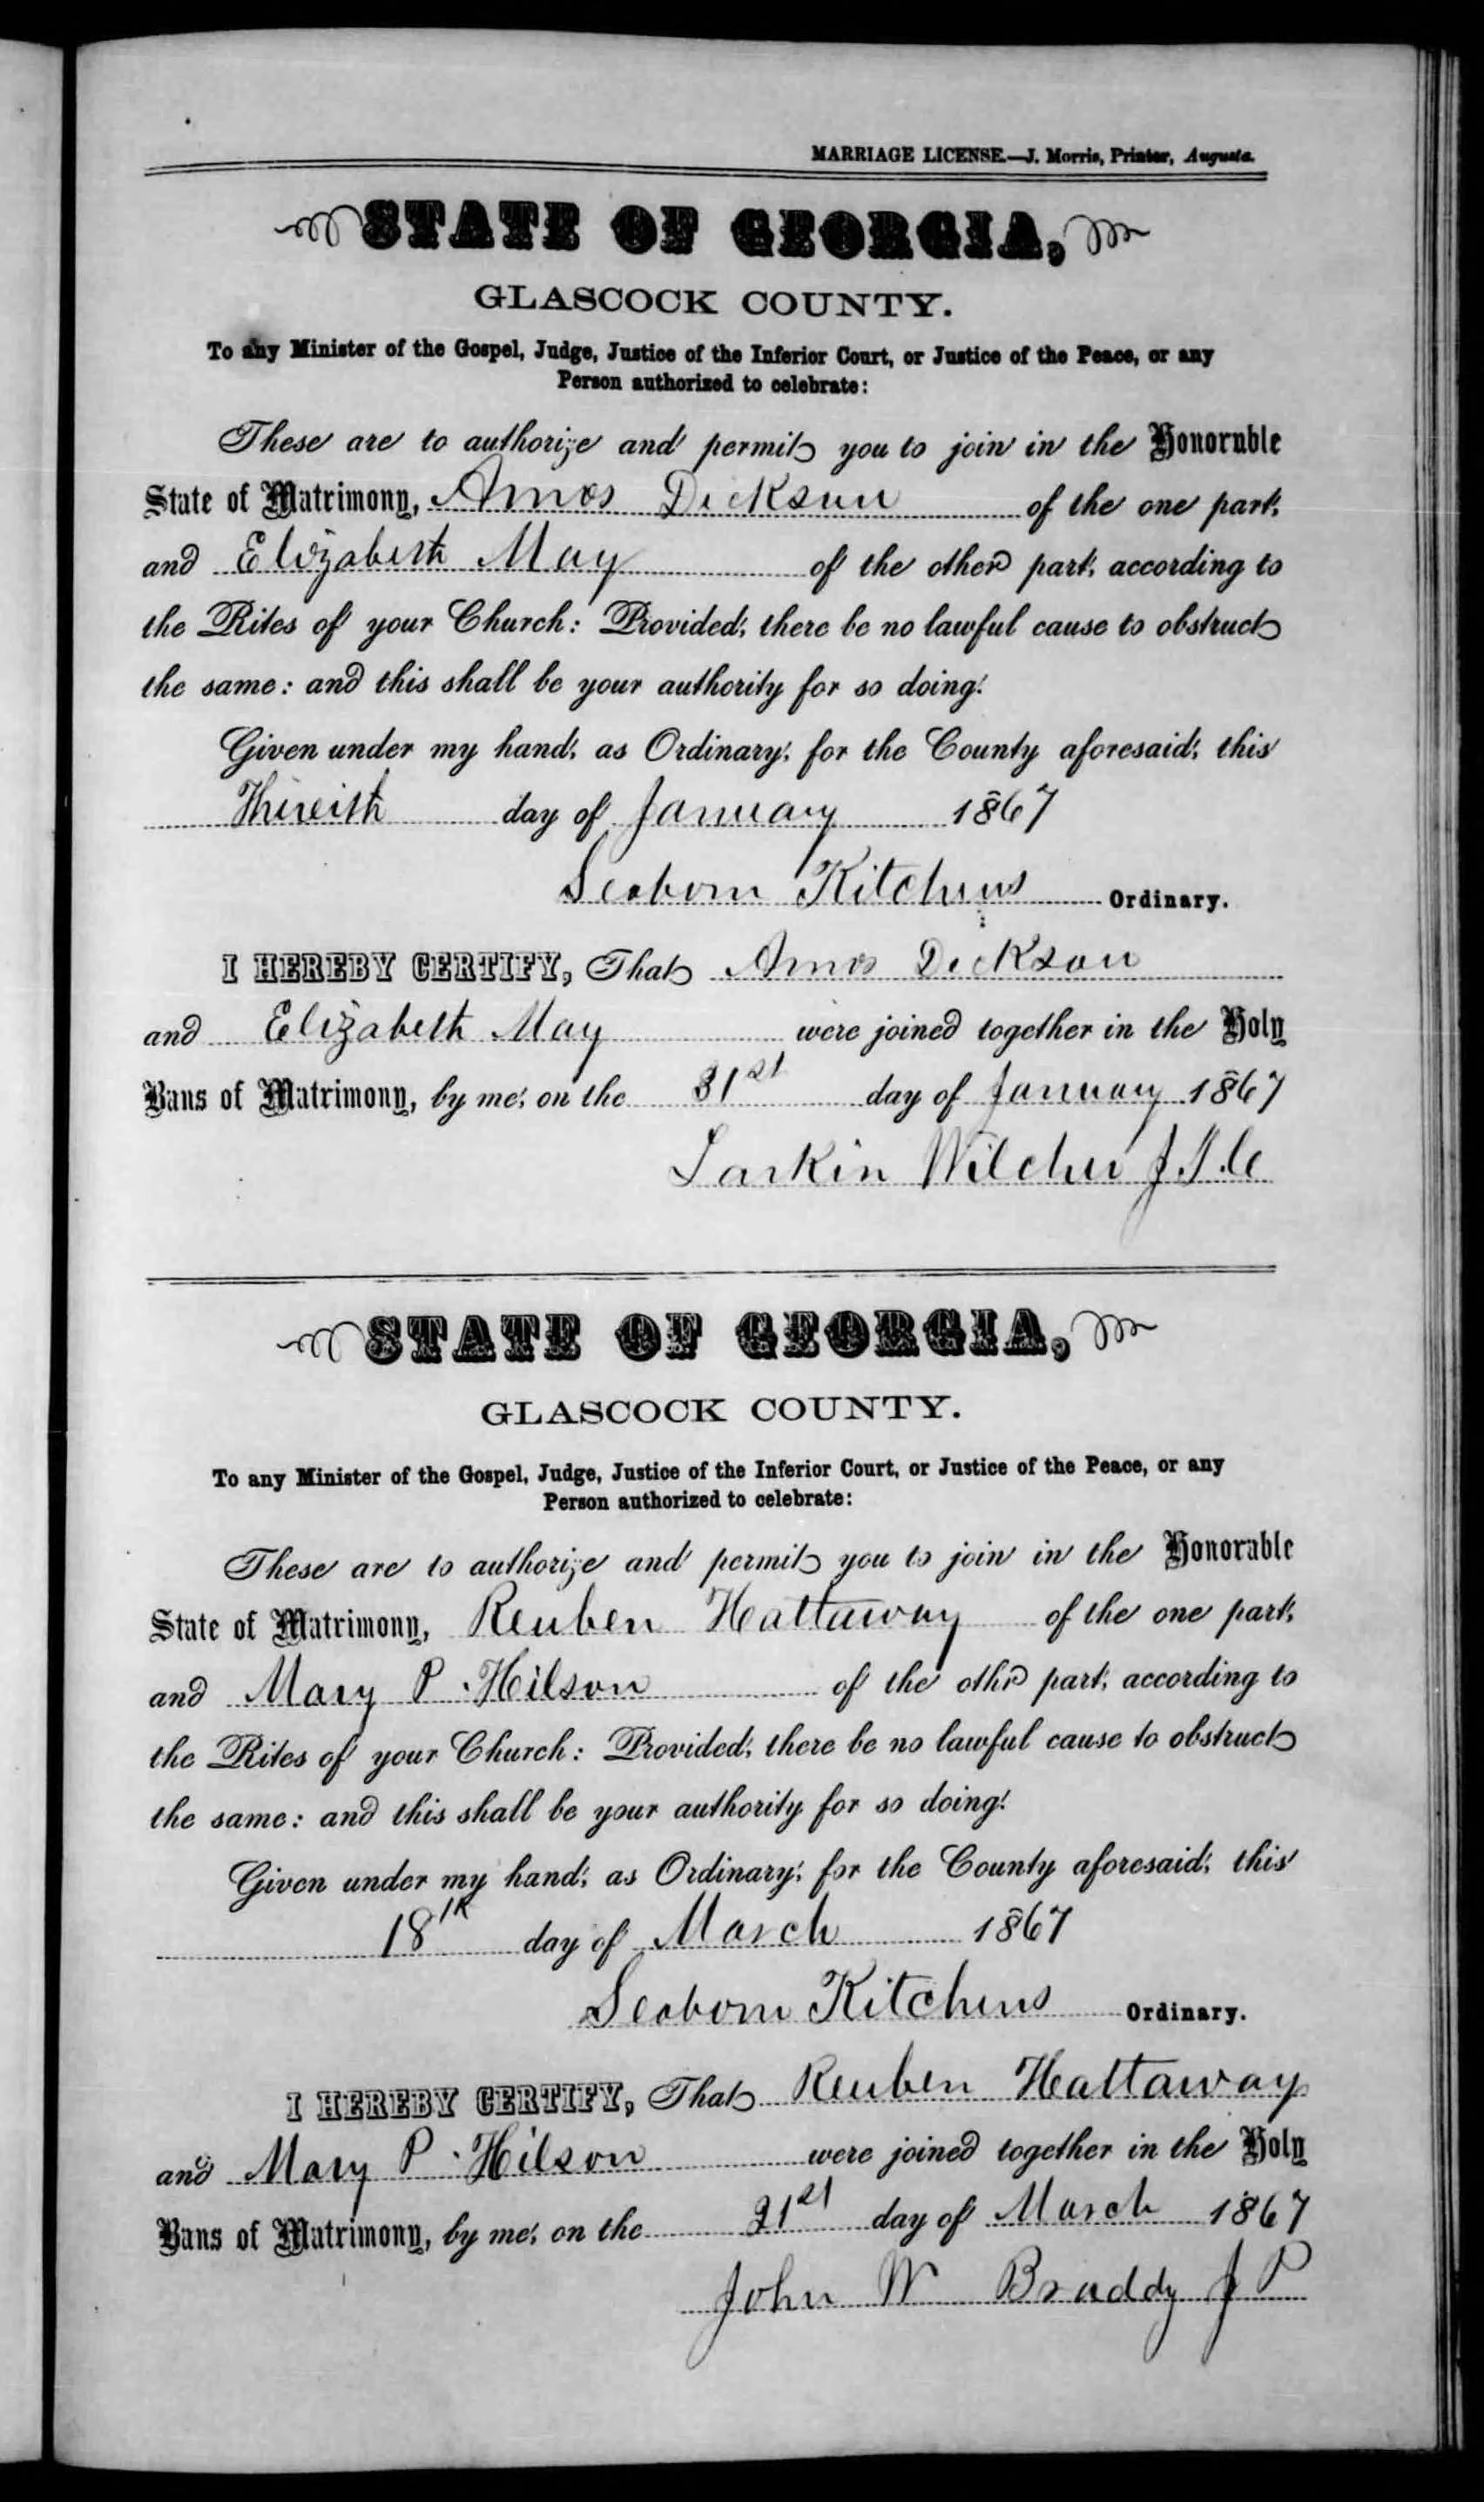 MARRIAGE LICENSE.—J. Morris, Printer, Augusta.
STATE OF GEORGIA,
GLASCOCK COUNTY.
To any Minister of the Gospel, Judge, Justice of the Inferior Court, or Justice of the Peace, or any
Person authorized to celebrate:
These are to authorize and permit you to join in the Honorable
State of Matrimony, Amos Dickson of the one part,
and Elizabeth May of the other part, according to
the Rites of your Church: Provided, there be no lawful cause to obstruct
the same: and this shall be your authority for so doing.
Given under my hand, as Ordinary, for the County aforesaid, this
day of January 1867
Seaborn Kitchens Ordinary.
I HEREBY CERTIFY, That Amos Dickson
and Elizabeth May were joined together in the Holy
Bans of Matrimony, by me, on the 31st day of January 1867
Larkin Wilcher J.I.C
STATE OF GEORGIA,
GLASCOCK COUNTY.
To any Minister of the Gospel, Judge, Justice of the Inferior Court, or Justice of the Peace, or any
Person authorized to celebrate:
These are to authorize and permit you to join in the Honorable
State of Matrimony, Reuben Hattaway of the one part,
and Mary P. Hilson of the othr part, according to
the Rites of your Church: Provided, there be no lawful cause to obstruct
the same: and this shall be your authority for so doing.
Given under my hand, as Ordinary, for the County aforesaid, this
18th day of March 1867
Seaborn Kitchens Ordinary.
I HEREBY CERTIFY, That Reuben Hattaway
and Mary P. Hilson were joined together in the Holy
Bans of Matrimony, by me, on the 21st day of March 1867
John W Braddy J P